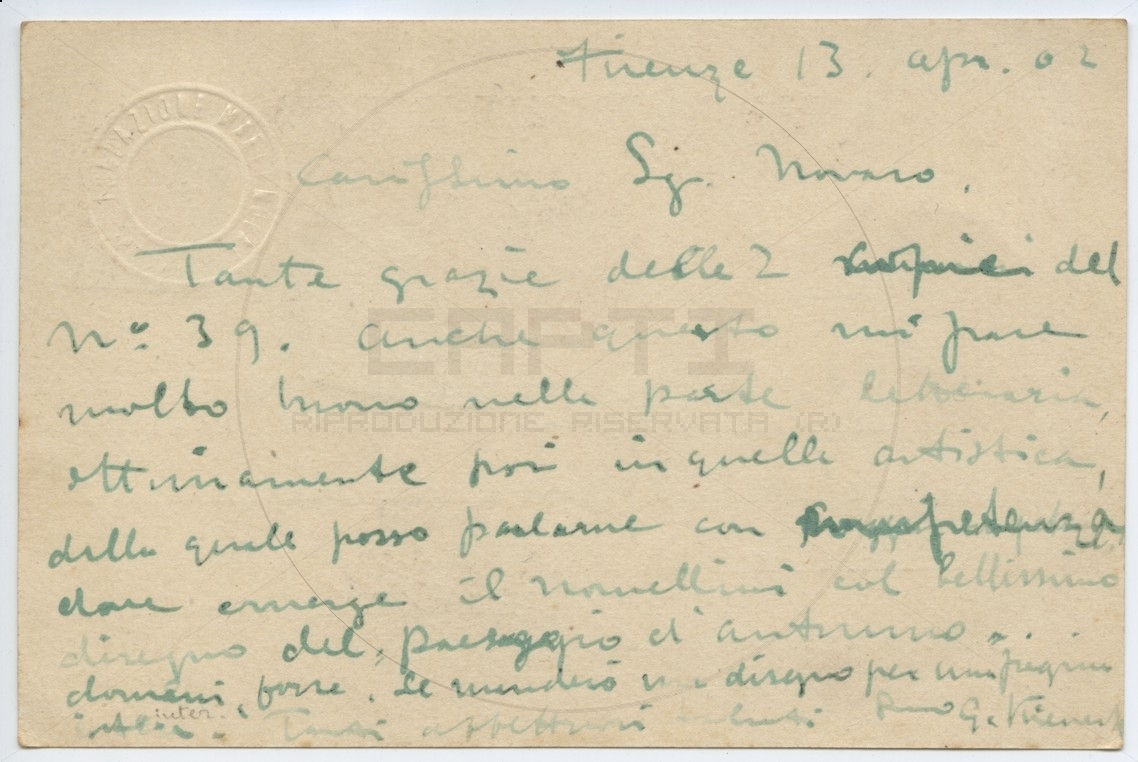 Firenze 13. apr. 02
FONDAZIONE MARIO NOVARO
Carissimo Sg. Novaro,
Tante grazie delle 2 copie del
Nº 39. Anche questo mi pare
molto buono nella parte letteraria,
ottimamente poi in quella artistica,
della quale posso parlarne con competenza
dove emerge il Nomellini col bellissimo
disegno del paesaggio d'autunno...
domani, forse, le manderò un disegno per una pagina
intera inter. Tanti affettuosi saluti Suo G. Kienerk
CAPTI
RIPRODUZIONE RISERVATA (R)